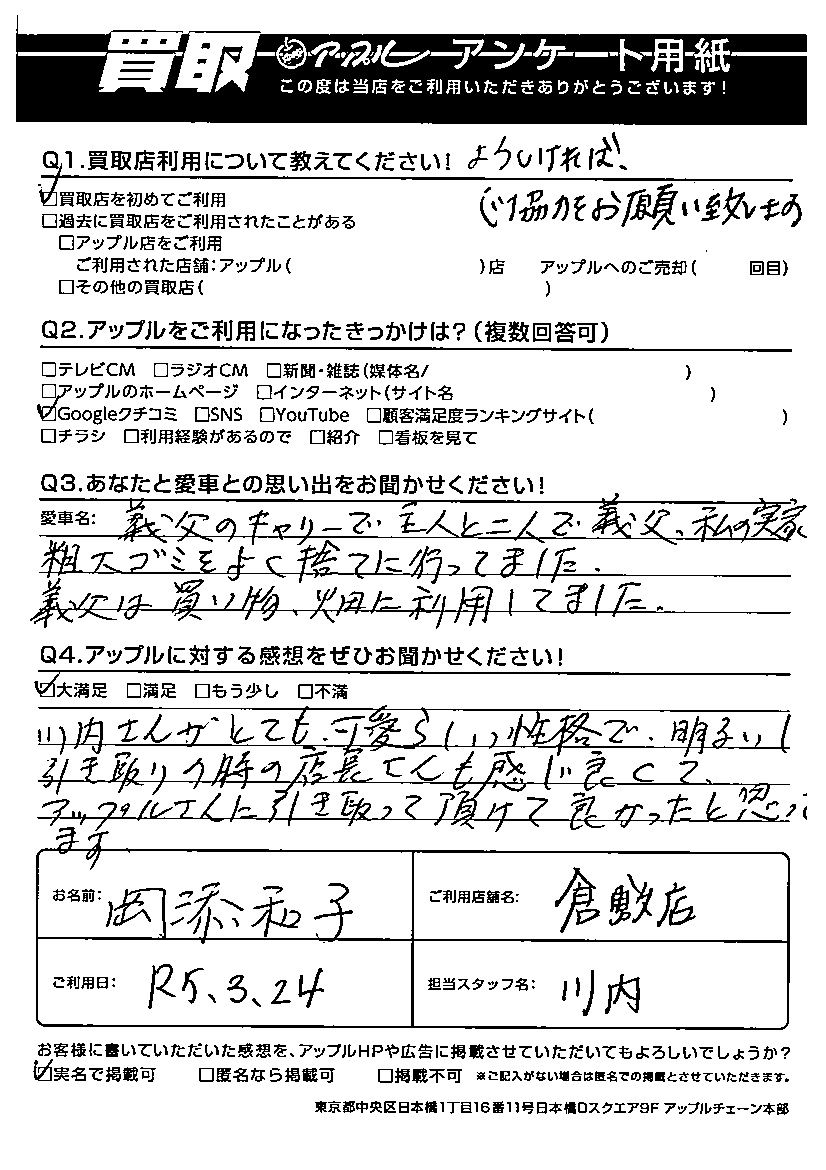 買取 アップル アンケート用紙
この度は当店をご利用いただきありがとうございます!
Q1.買取店利用について教えてください! よろしければ、
ご協力をお願い致します
☑買取店を初めてご利用
□過去に買取店をご利用されたことがある
□アップル店をご利用
ご利用された店舗:アップル( )店 アップルへのご売却( 回目)
□その他の買取店( )
Q2.アップルをご利用になったきっかけは?(複数回答可)
□テレビCM □ラジオCM □新聞・雑誌(媒体名/ )
□アップルのホームページ □インターネット(サイト名 )
☑Googleクチコミ □SNS □YouTube □顧客満足度ランキングサイト( )
□チラシ □利用経験があるので □紹介 □看板を見て
Q3.あなたと愛車との思い出をお聞かせください!
愛車名: 義父のキャリーで主人と二人で義父、私の実家
粗大ゴミをよく捨てに行ってました.
義父は買い物、畑に利用してました.
Q4.アップルに対する感想をぜひお聞かせください!
☑大満足 □満足 □もう少し □不満
川内さんがとても、可愛らしい性格で、明るいし
引き取りの時の店長さんも感じ良くて、
アップルさんに引き取って頂けて良かったと思って
ます.
お名前: 岡添和子
ご利用店舗名: 倉敷店
ご利用日: R5、3、24
担当スタッフ名: 川内
お客様に書いていただいた感想を、アップルHPや広告に掲載させていただいてもよろしいでしょうか?
☑実名で掲載可 □匿名なら掲載可 □掲載不可 ※ご記入がない場合は匿名での掲載とさせていただきます。
東京都中央区日本橋1丁目16番11号日本橋Dスクエア9F アップルチェーン本部